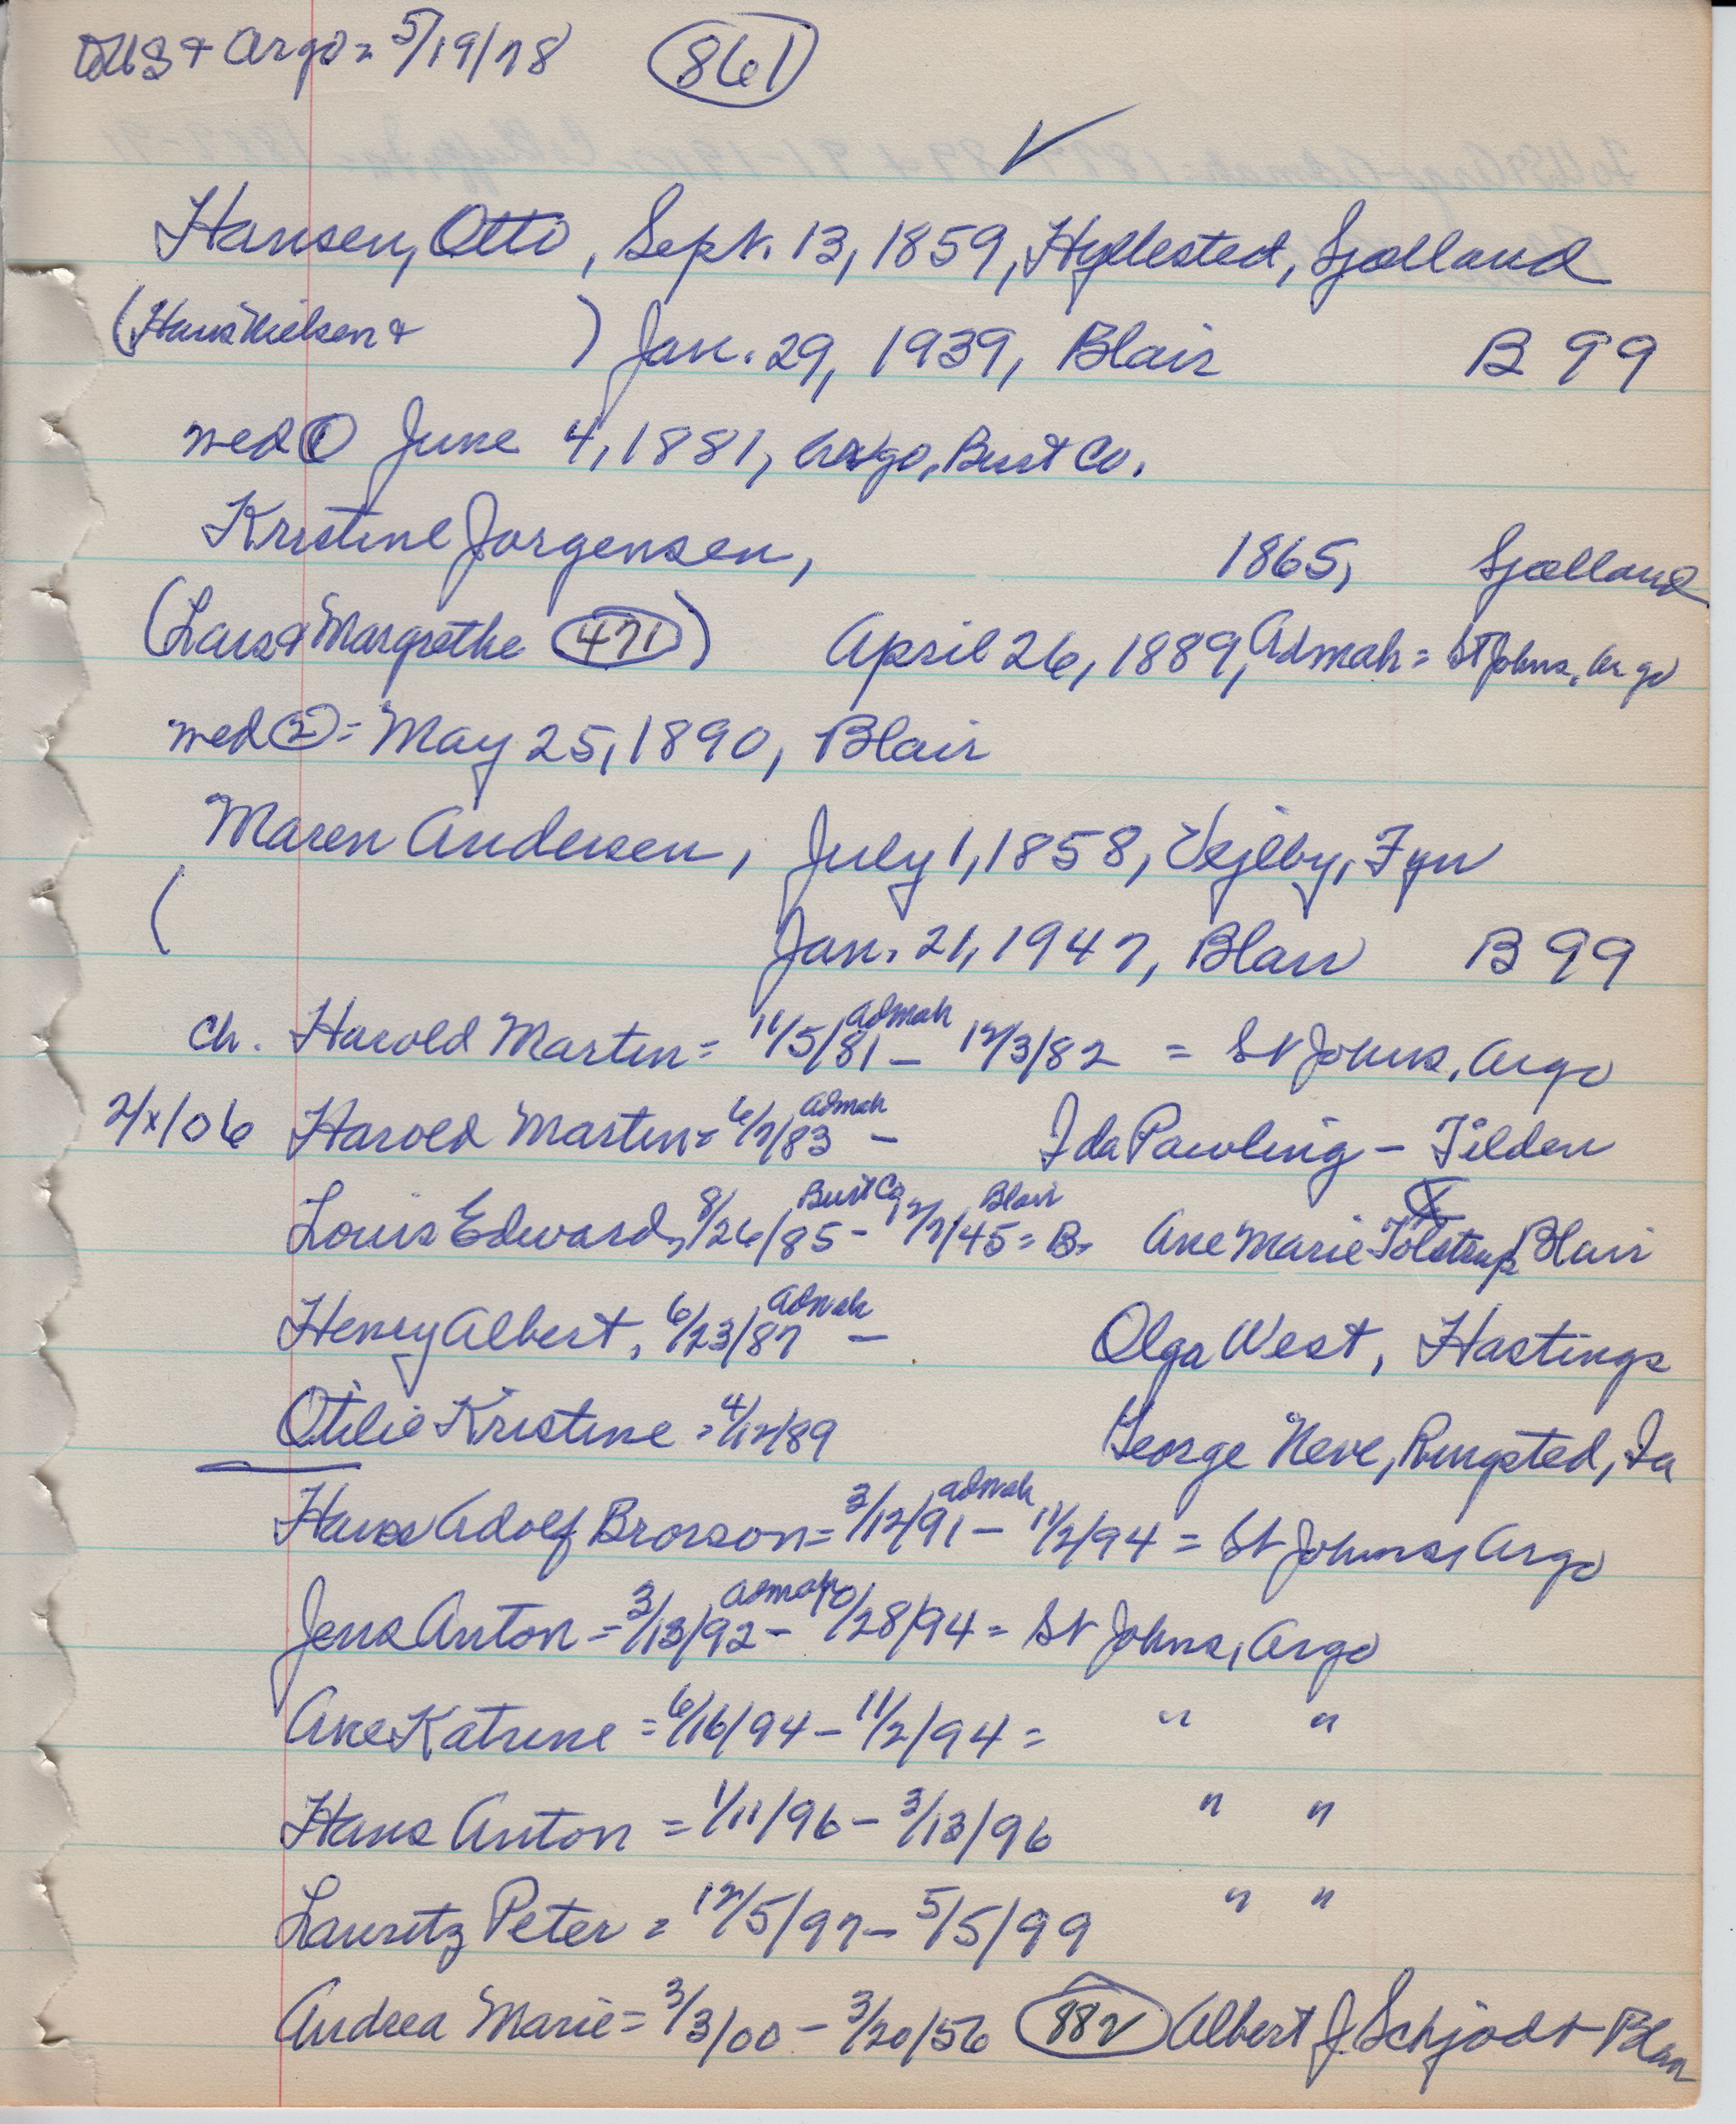 + Argo = 5/19/78 861
Hansen, Otto, Sept. 13, 1859, Hyllested, Sjælland
(Hans Nielsen + ) Jan. 29, 1939, Blair B 99
med ① June 4, 1881, Argo, Burt Co.
Kristine Jorgensen, 1865, Sjælland
(Lars & Margrethe 471) April 26, 1889, Admah = St Johns, Argo
med ② = May 25, 1890, Blair
Maren Andersen, July 1, 1858, Vejlby, Fyn
( Jan. 21, 1947, Blair B 99
ch. Harold Martin = 11/5/81 Admah - 12/3/82 = St Johns, Argo
2/x/06 Harold Martin = 6/7/83 Admah - Ida Pawling - Tilden
Louis Edward, 8/26/85 Burt Co, - 2/7/45 Blair = B. Ane Marie Tolstrup Blair
Henry Albert, 6/23/87 Admah - Olga West, Hastings
Otilie Kristine = 4/12/89 George Neve, Ringsted, Ia
Hans Adolf Brorson = 3/12/91 Admah - 11/2/94 = St Johns, Argo
Jens Anton = 3/13/92 Admah - 10/28/94 = St Johns, Argo
Ane Katrine = 6/16/94 - 11/2/94 = " "
Hans Anton = 1/11/96 - 3/13/96 " "
Lauritz Peter = 12/5/97 - 5/5/99 " "
Andrea Marie = 3/3/00 - 3/20/56 882 Albert J. Schjodt Blair